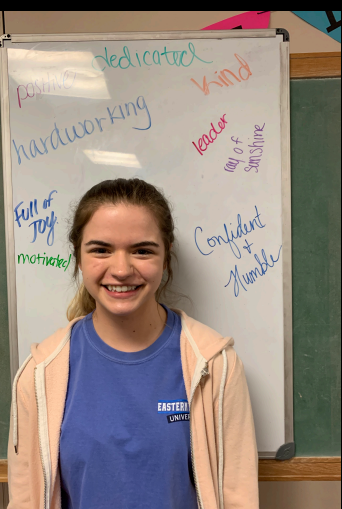 dedicated
positive
kind
hardworking
leader
ray of
sunshine
Full of
Joy
motivated
Confident
+
Humble
EASTERN
UNIVER